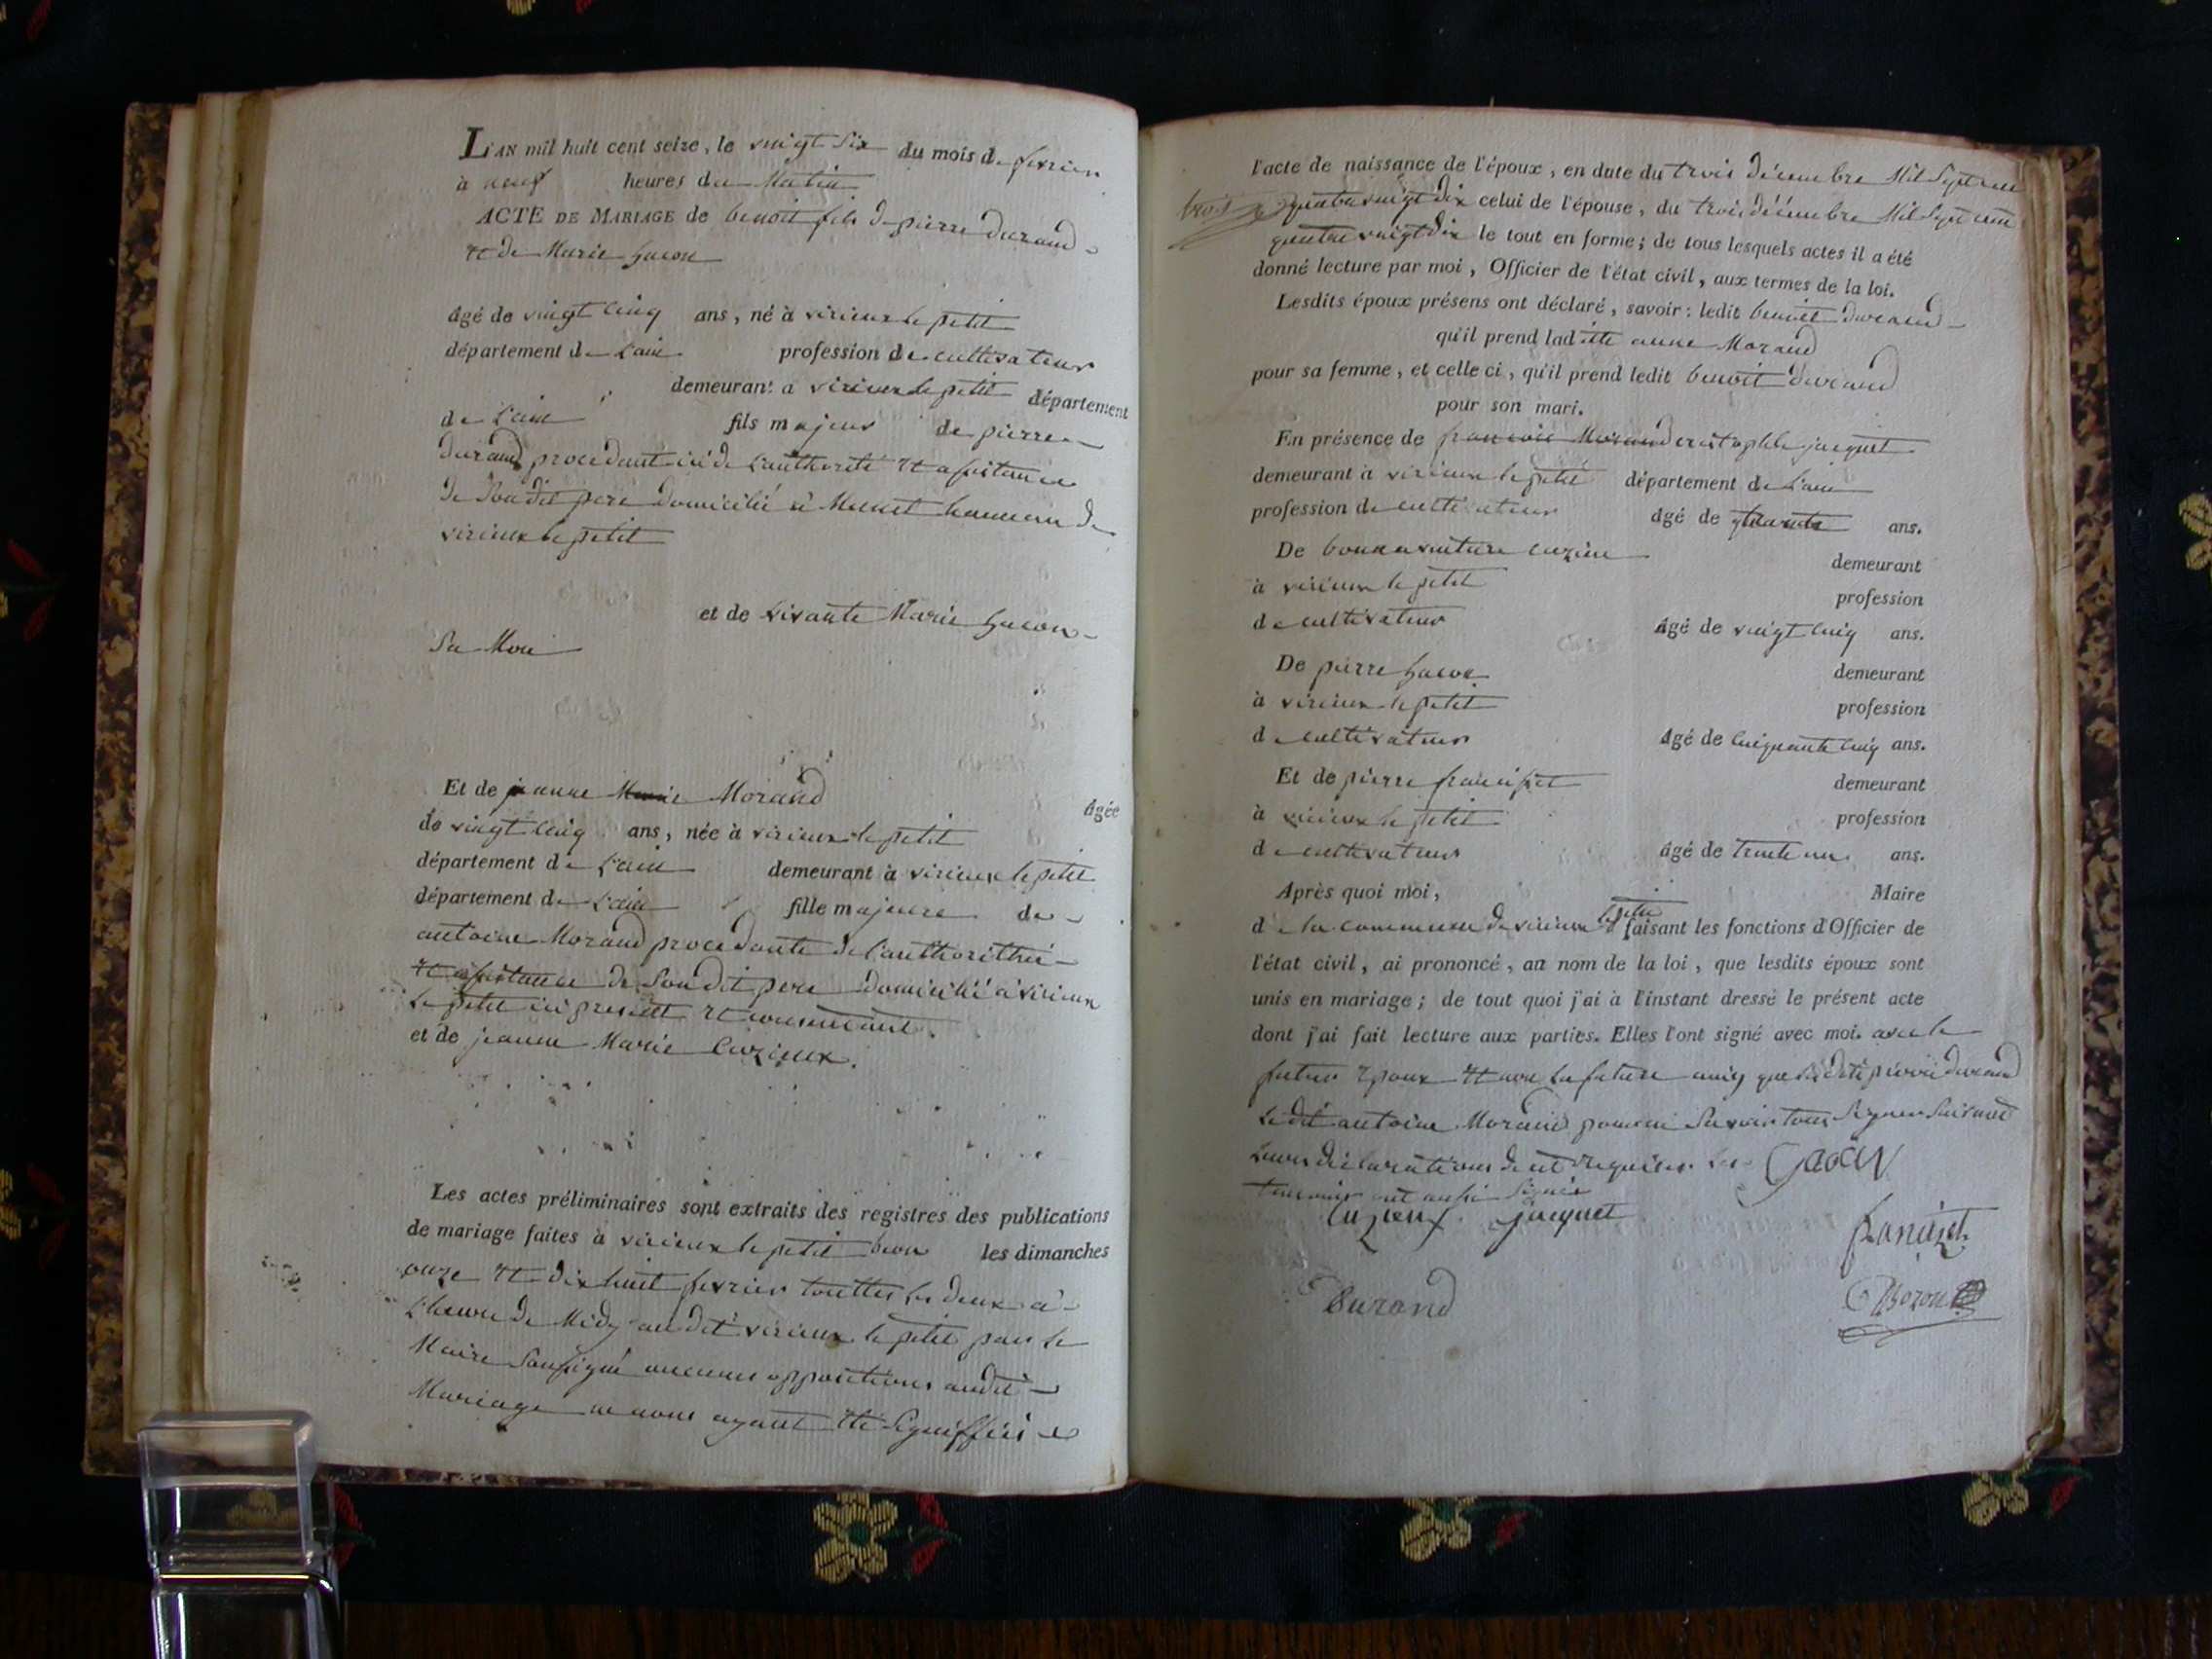 L'AN mil huit cent seize, le vingt six du mois de fevrier
à neuf heures du Matin
ACTE DE MARIAGE de benoit fils de pierre durand
et de Marie gacon
âgé de vingt cinq ans, né à virieux le petit
département de L'ain profession de cultivateur
demeurant à virieux le petit département
de L'ain fils majeur de pierre
durand procedant ici de L'authorité et assistance
de Son dit pere domicilié à Munet hameau de
virieux le petit
et de vivante Marie gacon
Sa Mere
Et de anne Morand âgée
de vingt cinq ans, née à virieux le petit
département de L'ain demeurant à virieux le petit
département de L'ain fille majeure de
antoine Morand procedante de l'authorithé
et assistance de Son dit pere domicilié à virieux
Le petit ici present et consentant
et de jeanne Marie Cuzieux.
Les actes préliminaires sont extraits des registres des publications
de mariage faites à virieux le petit les dimanches
onze et dix huit fevrier touttes les deux à
L'heure de Midy au dit virieux le petit par le
Maire Soussigné aucunes oppositions audit
Mariage ne nous ayant été Signiffiés
l'acte de naissance de l'époux, en date du trois décembre Mil Sept cent
trois quatre vingt dix celui de l'épouse, du trois décembre Mil Sept cent
quatre vingt dix le tout en forme; de tous lesquels actes il a été
donné lecture par moi, Officier de l'état civil, aux termes de la loi.
Lesdits époux présens ont déclaré, savoir: ledit benoit durand
qu'il prend ladite anne Morand
pour sa femme, et celle ci, qu'il prend ledit benoit durand
pour son mari.
En présence de francois Morand cristophle jacquet
demeurant à virieux le petit département de L'ain
profession de cultivateur âgé de ans.
De bonnaventure cuzieu demeurant
à virieux le petit profession
de cultivateur âgé de vingt cinq ans.
De pierre gacon demeurant
à virieux le petit profession
de cultivateur âgé de cinquante cinq ans.
Et de pierre francisset demeurant
à virieux le petit profession
de cultivateur âgé de trente un ans.
Après quoi moi, Maire
de la commune de virieux le petit faisant les fonctions d'Officier de
l'état civil, ai prononcé, au nom de la loi, que lesdits époux sont
unis en mariage; de tout quoi j'ai à l'instant dressé le présent acte
dont j'ai fait lecture aux parties. Elles l'ont signé avec moi. avec le
futur epoux et non La future ainsy que Lesdits pierre durand
Le dit antoine Morand pour ne Savoir tous Signer Suivant
Leurs déclarations de ce requises. Les
temoins ont aussi Signés
gacon
Cuzieux jacquet
francizet
Durand